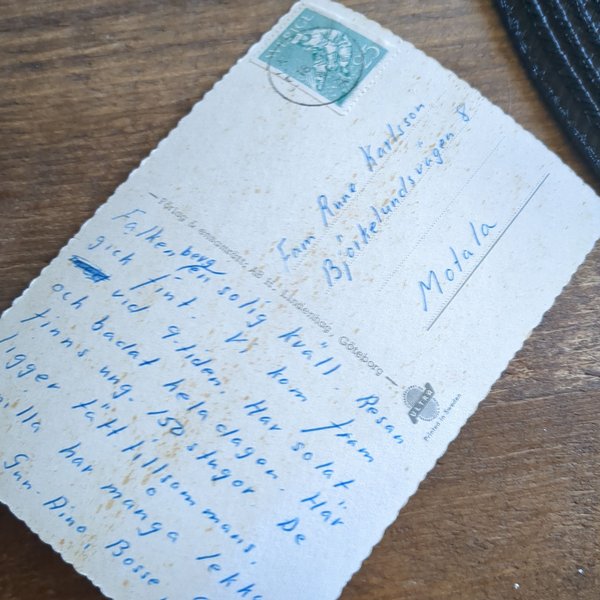 Falkenberg en solig kväll. Resan
gick fint. Vi kom fram
vid 9-tiden. Har solat
och badat hela dagen. Här
finns ung. 150 stugor. De
ligger tätt tillsammans.
illa har många
Gun-Britt, Bosse
Fam Rune Karlsson
Björkelundsvägen 8
Motala
ensamrätt. AB H. Lindenhag, Göteborg
ULTRA
Printed in Sweden